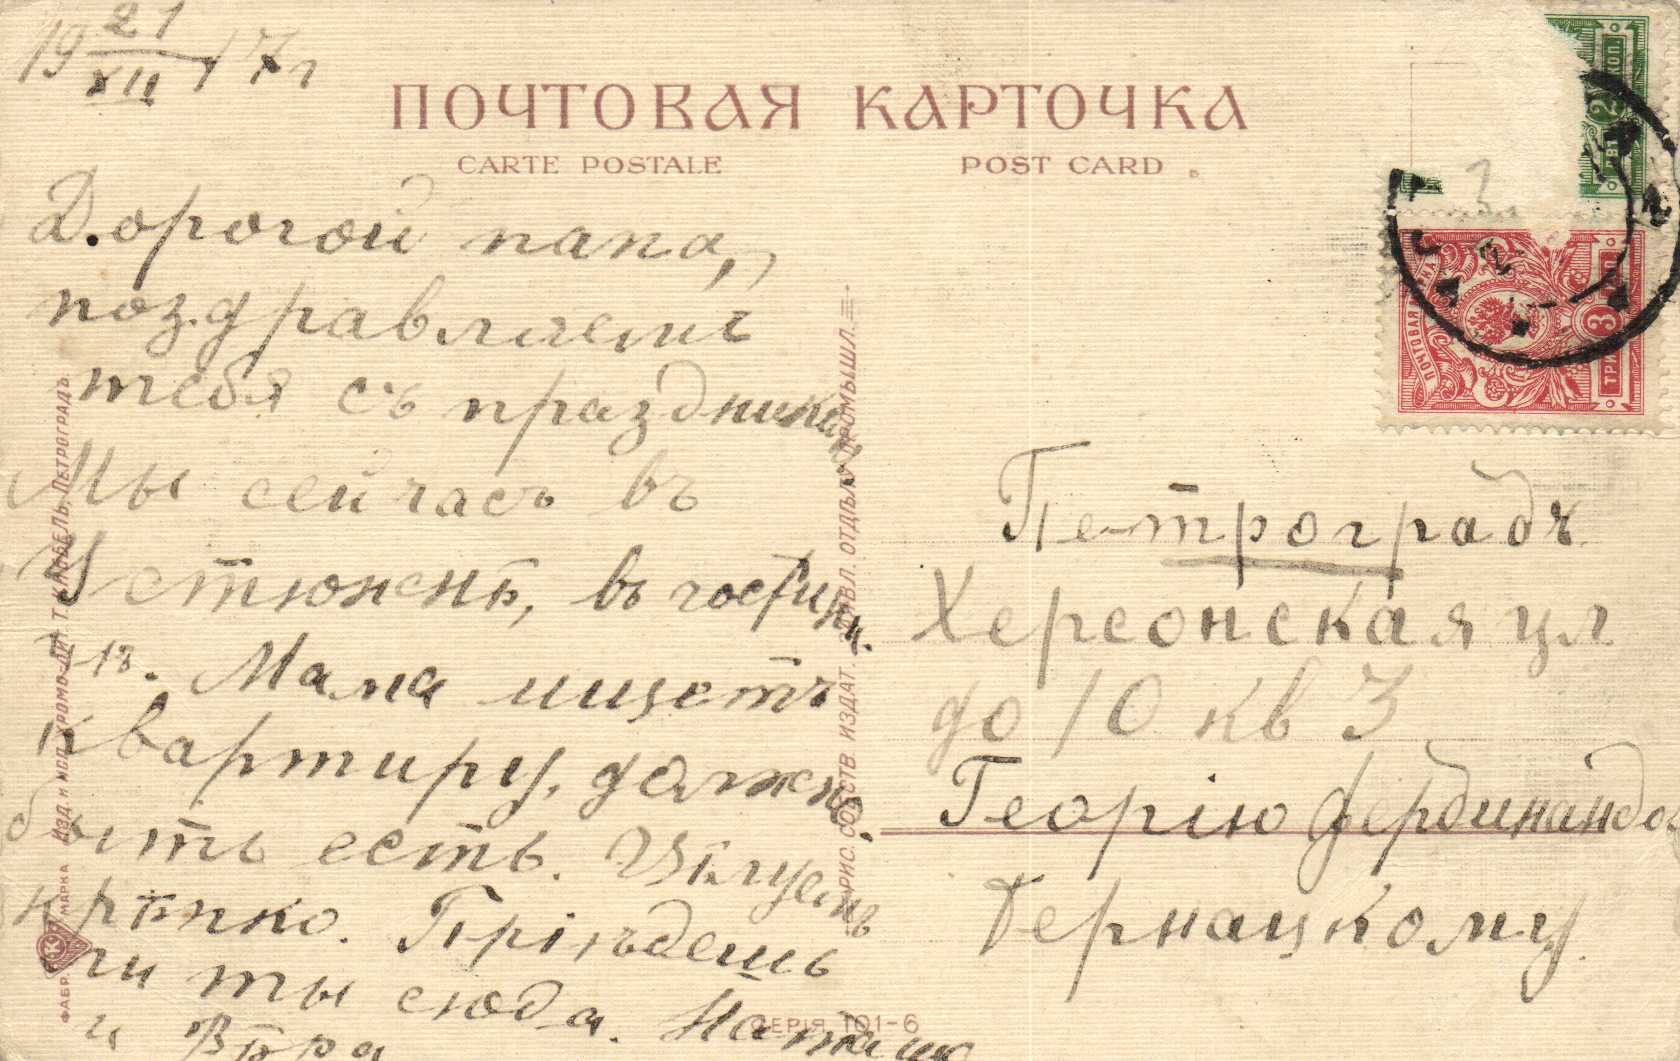 19 21/XII 17 г
ПОЧТОВАЯ КАРТОЧКА
CARTE POSTALE
POST CARD
Дорогой папа,
поздравляемъ
тебя съ праздникам
Мы сейчасъ въ
Устюжнѣ, въ гостин.
цѣ. Мама ищетъ
квартиру, должно
быть есть. Цѣлуемъ
крѣпко. Пріѣдешь
ли ты сюда. Наташа
и Вѣра
Петроградъ
Херсонская ул
до 10 кв 3
Георгію Фердинандов
Дернацкому
ПОЧТОВАЯ
3
2
КОП.
ФАБР. МАРКА
ИЗД. И ИСП. ХРОМО-ЛИТ. Т. КИББЕЛЬ, ПЕТРОГРАДЪ
РИС. СОБСТВ. ИЗДАТ.
ОТДѢЛ. ПРОМЫШЛ.
СЕРІЯ 101-6